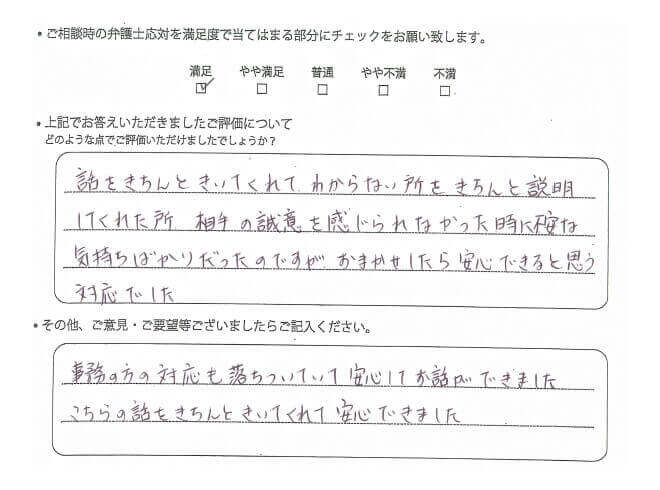 ・ご相談時の弁護士応対を満足度で当てはまる部分にチェックをお願い致します。
満足 やや満足 普通 やや不満 不満
☑ □ □ □ □
・上記でお答えいただきましたご評価について
どのような点でご評価いただけましたでしょうか？
話をきちんときいてくれて わからない所をきちんと説明
してくれた所 相手の誠意を感じられなかった時に不安な
気持ちばかりだったのですが おまかせしたら安心できると思う
対応でした
・その他、ご意見・ご要望等ございましたらご記入ください。
事務の方の対応も落ちついていて安心してお話ができました
こちらの話をきちんときいてくれて安心できました